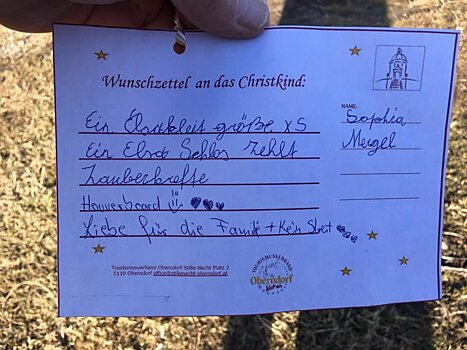 Wunschzettel an das Christkind:
NAME:
Sophia
Mergel
Ein Elsakleit größe XS
Ein Elsa Schlos Zehlt
Zauberkrefte
Hauverboard
Liebe für die Familie + Kein Streit
Tourismusverband Oberndorf Stille Nacht Platz 2
5110 Oberndorf office@stillenacht-oberndorf.at
TOURISMUSVERBAND
Oberndorf